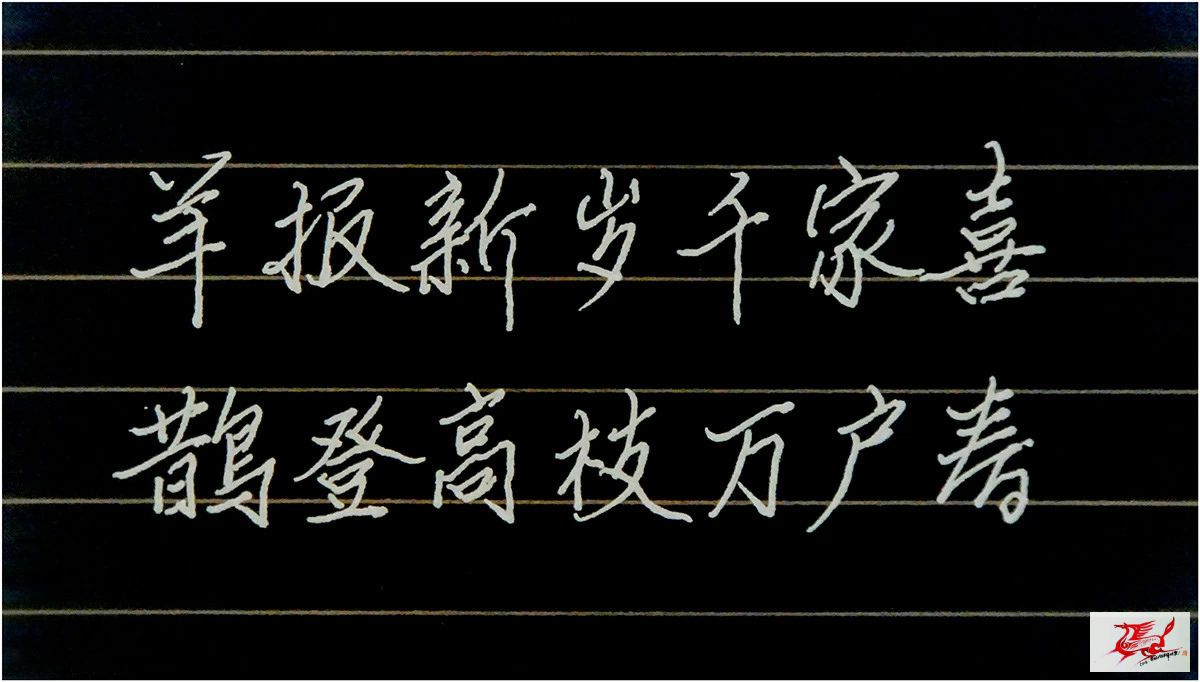 羊报新岁千家喜
鹊登高枝万户春